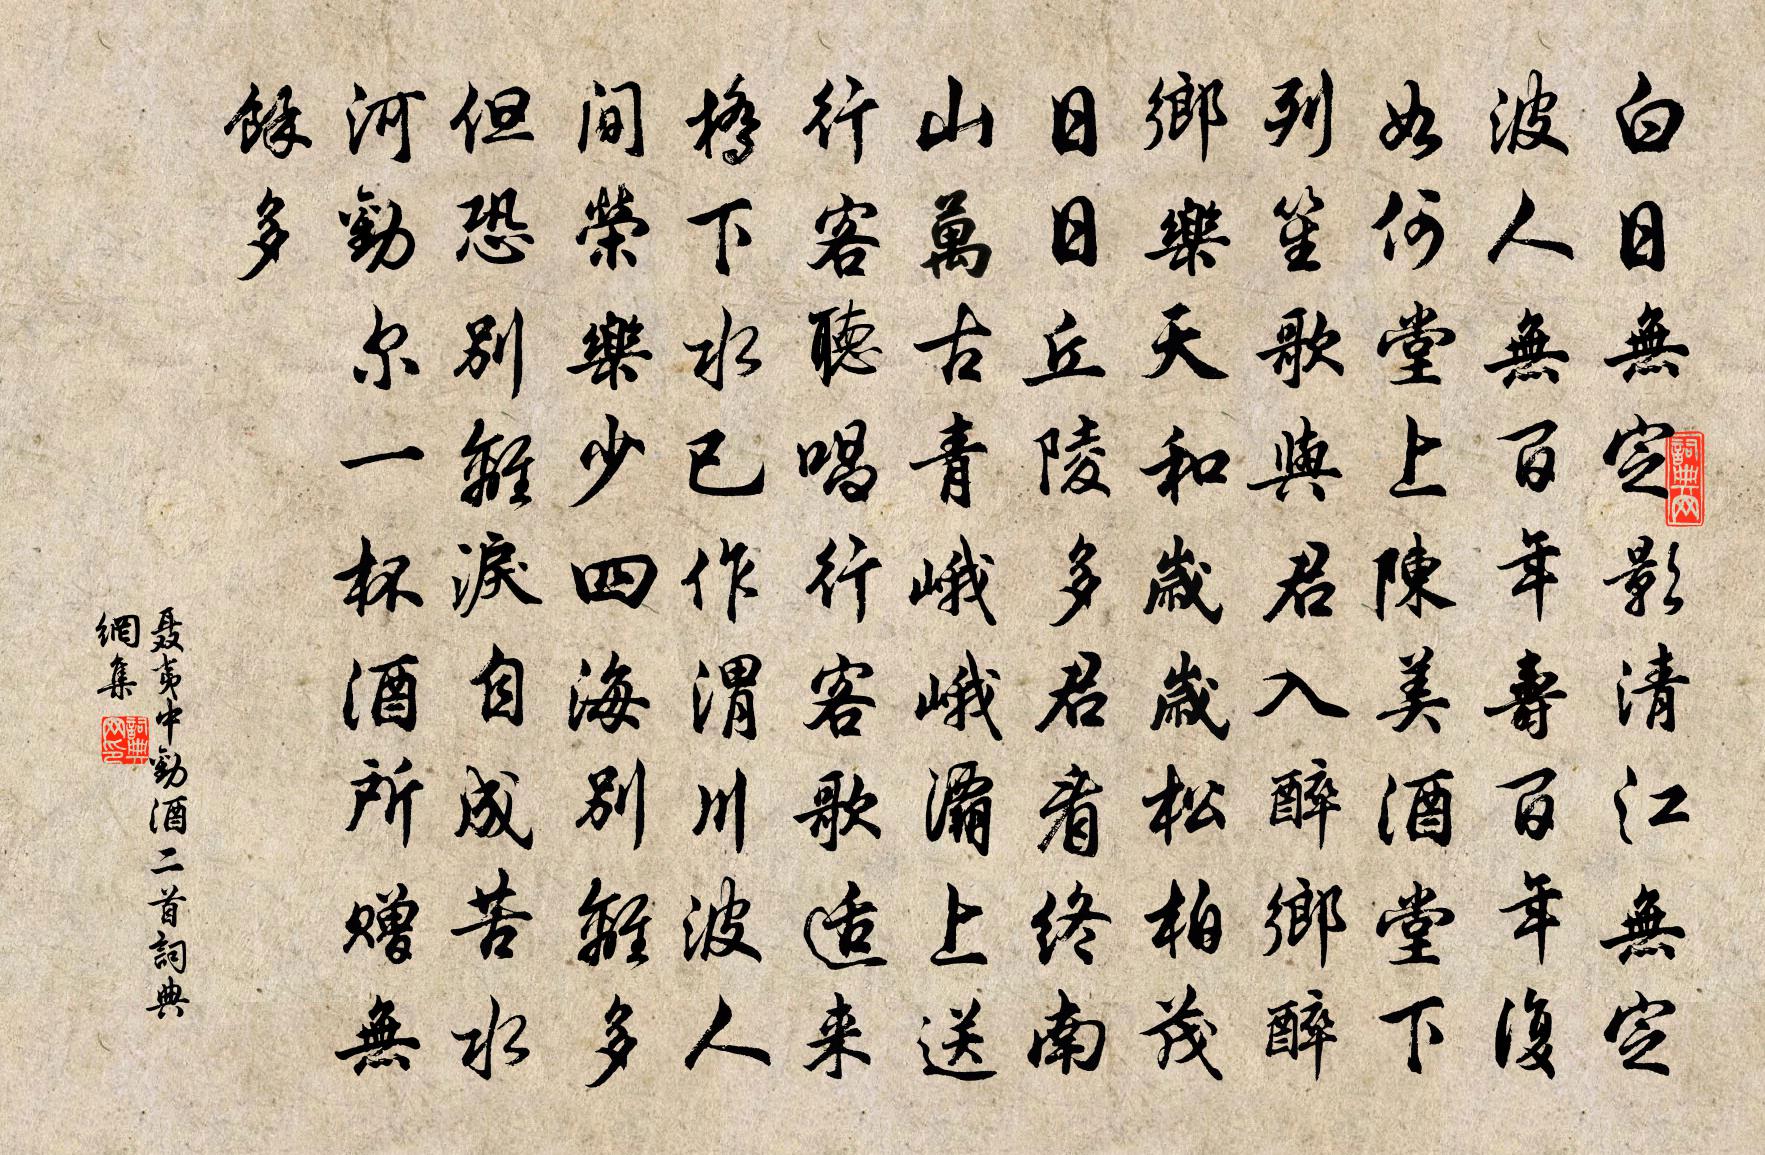 白日無定影清江無定
波人無百年壽百年復
如何堂上陳美酒堂下
列笙歌與君入醉鄉醉
鄉樂天和歲歲松柏茂
日日丘陵多君看終南
山萬古青峨峨灞上送
行客聽唱行客歌适来
橋下水已作渭川波人
间榮樂少四海别離多
但恐别離淚自成苦水
河勸尔一杯酒所贈無
餘多
聶夷中勸酒二首詞典
網集
詞典网
詞典网印